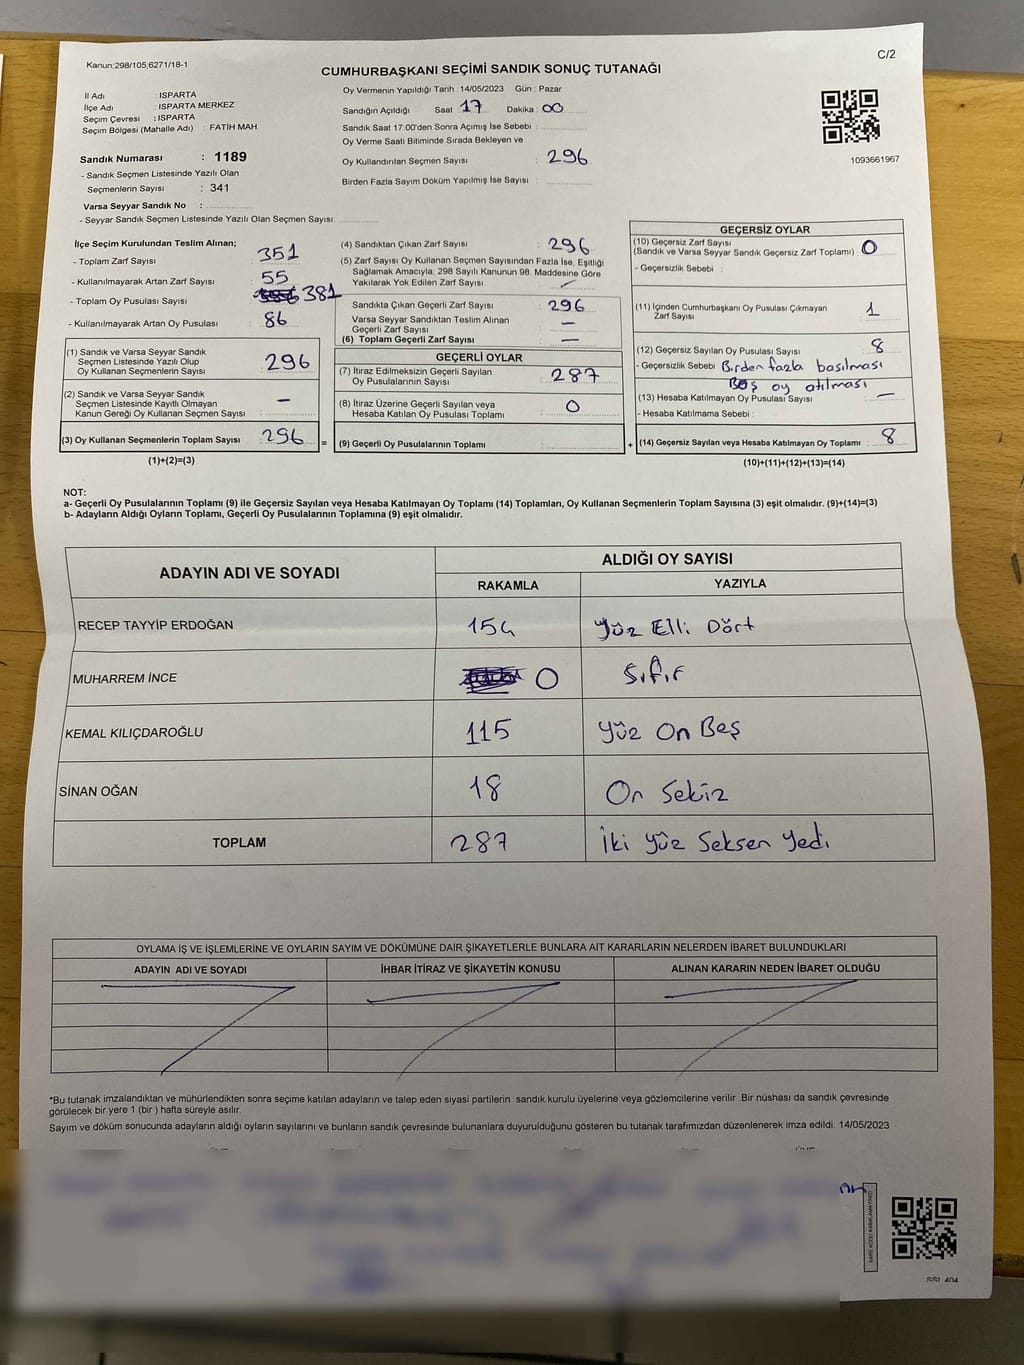 Kanun:298/105;6271/18-1
C/2
CUMHURBAŞKANI SEÇİMİ SANDIK SONUÇ TUTANAĞI
İl Adı : ISPARTA
İlçe Adı : ISPARTA MERKEZ
Seçim Çevresi : ISPARTA
Seçim Bölgesi (Mahalle Adı) : FATİH MAH.
Sandık Numarası : 1189
- Sandık Seçmen Listesinde Yazılı Olan
Seçmenlerin Sayısı : 341
Varsa Seyyar Sandık No :
- Seyyar Sandık Seçmen Listesinde Yazılı Olan Seçmen Sayısı:
Oy Vermenin Yapıldığı Tarih :14/05/2023 Gün : Pazar
Sandığın Açıldığı Saat : 17 Dakika : 00
Sandık Saat 17:00'den Sonra Açımış İse Sebebi :
Oy Verme Saati Bitiminde Sırada Bekleyen ve
Oy Kullandırılan Seçmen Sayısı : 296
Birden Fazla Sayım Döküm Yapılmış İse Sayısı :
1093661967
İlçe Seçim Kurulundan Teslim Alınan;
- Toplam Zarf Sayısı : 351
- Kullanılmayarak Artan Zarf Sayısı : 55
- Toplam Oy Pusulası Sayısı : 381
- Kullanılmayarak Artan Oy Pusulası : 86
(1) Sandık ve Varsa Seyyar Sandık
Seçmen Listesinde Yazılı Olup
Oy Kullanan Seçmenlerin Sayısı : 296
(2) Sandık ve Varsa Seyyar Sandık
Seçmen Listesinde Kayıtlı Olmayan
Kanun Gereği Oy Kullanan Seçmen Sayısı : –
(3) Oy Kullanan Seçmenlerin Toplam Sayısı : 296 =
(1)+(2)=(3)
(4) Sandıktan Çıkan Zarf Sayısı : 296
(5) Zarf Sayısı Oy Kullanan Seçmen Sayısından Fazla İse, Eşitliği
Sağlamak Amacıyla, 298 Sayılı Kanunun 98. Maddesine Göre
Yakılarak Yok Edilen Zarf Sayısı :
Sandıkta Çıkan Geçerli Zarf Sayısı : 296
Varsa Seyyar Sandıktan Teslim Alınan
Geçerli Zarf Sayısı : –
(6) Toplam Geçerli Zarf Sayısı : –
GEÇERLİ OYLAR
(7) İtiraz Edilmeksizin Geçerli Sayılan
Oy Pusulalarının Sayısı : 287
(8) İtiraz Üzerine Geçerli Sayılan veya
Hesaba Katılan Oy Pusulası Toplamı : 0
(9) Geçerli Oy Pusulalarının Toplamı : +
GEÇERSİZ OYLAR
(10) Geçersiz Zarf Sayısı
(Sandık ve Varsa Seyyar Sandık Geçersiz Zarf Toplamı) : 0
- Geçersizlik Sebebi :
(11) İçinden Cumhurbaşkanı Oy Pusulası Çıkmayan
Zarf Sayısı : 1
(12) Geçersiz Sayılan Oy Pusulası Sayısı : 8
- Geçersizlik Sebebi : Birden fazla basılması
Boş oy atılması
(13) Hesaba Katılmayan Oy Pusulası Sayısı : –
- Hesaba Katılmama Sebebi :
(14) Geçersiz Sayılan veya Hesaba Katılmayan Oy Toplamı : 8
(10)+(11)+(12)+(13)=(14)
NOT:
a- Geçerli Oy Pusulalarının Toplamı (9) ile Geçersiz Sayılan veya Hesaba Katılmayan Oy Toplamı (14) Toplamları, Oy Kullanan Seçmenlerin Toplam Sayısına (3) eşit olmalıdır. (9)+(14)=(3)
b- Adayların Aldığı Oyların Toplamı, Geçerli Oy Pusulalarının Toplamına (9) eşit olmalıdır.
ADAYIN ADI VE SOYADI ALDIĞI OY SAYISI
RAKAMLA YAZIYLA
RECEP TAYYİP ERDOĞAN 154 Yüz Elli Dört
MUHARREM İNCE 0 Sıfır
KEMAL KILIÇDAROĞLU 115 Yüz On Beş
SİNAN OĞAN 18 On Sekiz
TOPLAM 287 İki Yüz Seksen Yedi
OYLAMA İŞ VE İŞLEMLERİNE VE OYLARIN SAYIM VE DÖKÜMÜNE DAİR ŞİKAYETLERLE BUNLARA AİT KARARLARIN NELERDEN İBARET BULUNDUKLARI
ADAYIN ADI VE SOYADI İHBAR İTİRAZ VE ŞİKAYETİN KONUSU ALINAN KARARIN NEDEN İBARET OLDUĞU
*Bu tutanak imzalandıktan ve mühürlendikten sonra seçime katılan adayların ve talep eden siyasi partilerin sandık kurulu üyelerine veya gözlemcilerine verilir .Bir nüshası da sandık çevresinde
görülecek bir yere 1 (bir ) hafta süreyle asılır.
Sayım ve döküm sonucunda adayların aldığı oyların sayılarını ve bunların sandık çevresinde bulunanlara duyurulduğunu gösteren bu tutanak tarafımızdan düzenlenerek imza edildi. 14/05/2023